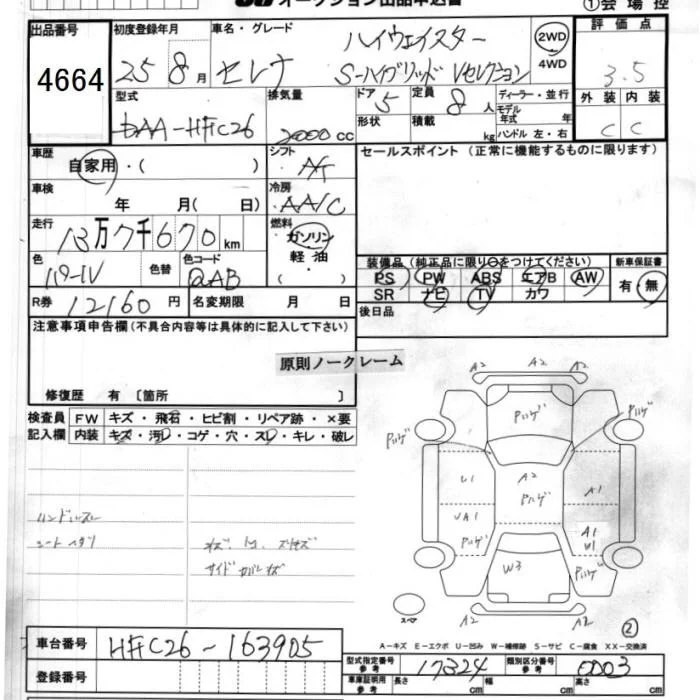 オークション出品申込書
①会場控
出品番号 初度登録年月 車名・グレード 評価点
4664
25 8月 セレナ ハイウェイスター
S-ハイブリッド Vセレクション
2WD
4WD
3.5
型式 排気量 ドア 定員 ディーラー・並行 外装 内装
DAA-HFC26 2000 cc 5 8人 モデル年式 年 C C
形状 積載 kg ハンドル 左・右
車歴 シフト セールスポイント (正常に機能するものに限ります)
自家用・( ) AT
車検 冷房
年 月( 日) AA/C
走行 燃料
13万7千670km ガソリン
軽・油
・
( )
色 色替 カラーコード
パール QAB
装備品(純正品に限り○をつけてください) 新車保証書
PS PW ABS エアB AW 有・無
SR ナビ TV カワ
R券 12160円 名変期限 月 日
後日品
注意事項申告欄(不具合内容等は具体的に記入して下さい)
原則ノークレーム
修復歴 有 [箇所 ]
検査員 FW キズ・飛石・ヒビ割・リペア跡・×要
記入欄 内装 キズ・汚レ・コゲ・穴・スレ・キレ・破レ
A2 A2 A2
Pハゲ Pハゲ Pハゲ
U1 A2 A1
Pハゲ
UA1 A1
Pハゲ W1
W3 Pハゲ
A2 A2
ハンドルスレ
シートヘタリ
スペア
②
A-キズ E-エクボ U-凹み W-補修跡 S-サビ C-腐食 XX-交換済
車台番号 HFC26-163905
型式指定番号 参考 17324 類別区分番号 参考 0003
登録番号
車庫証明用 参考 長さ cm 幅 cm 高さ cm